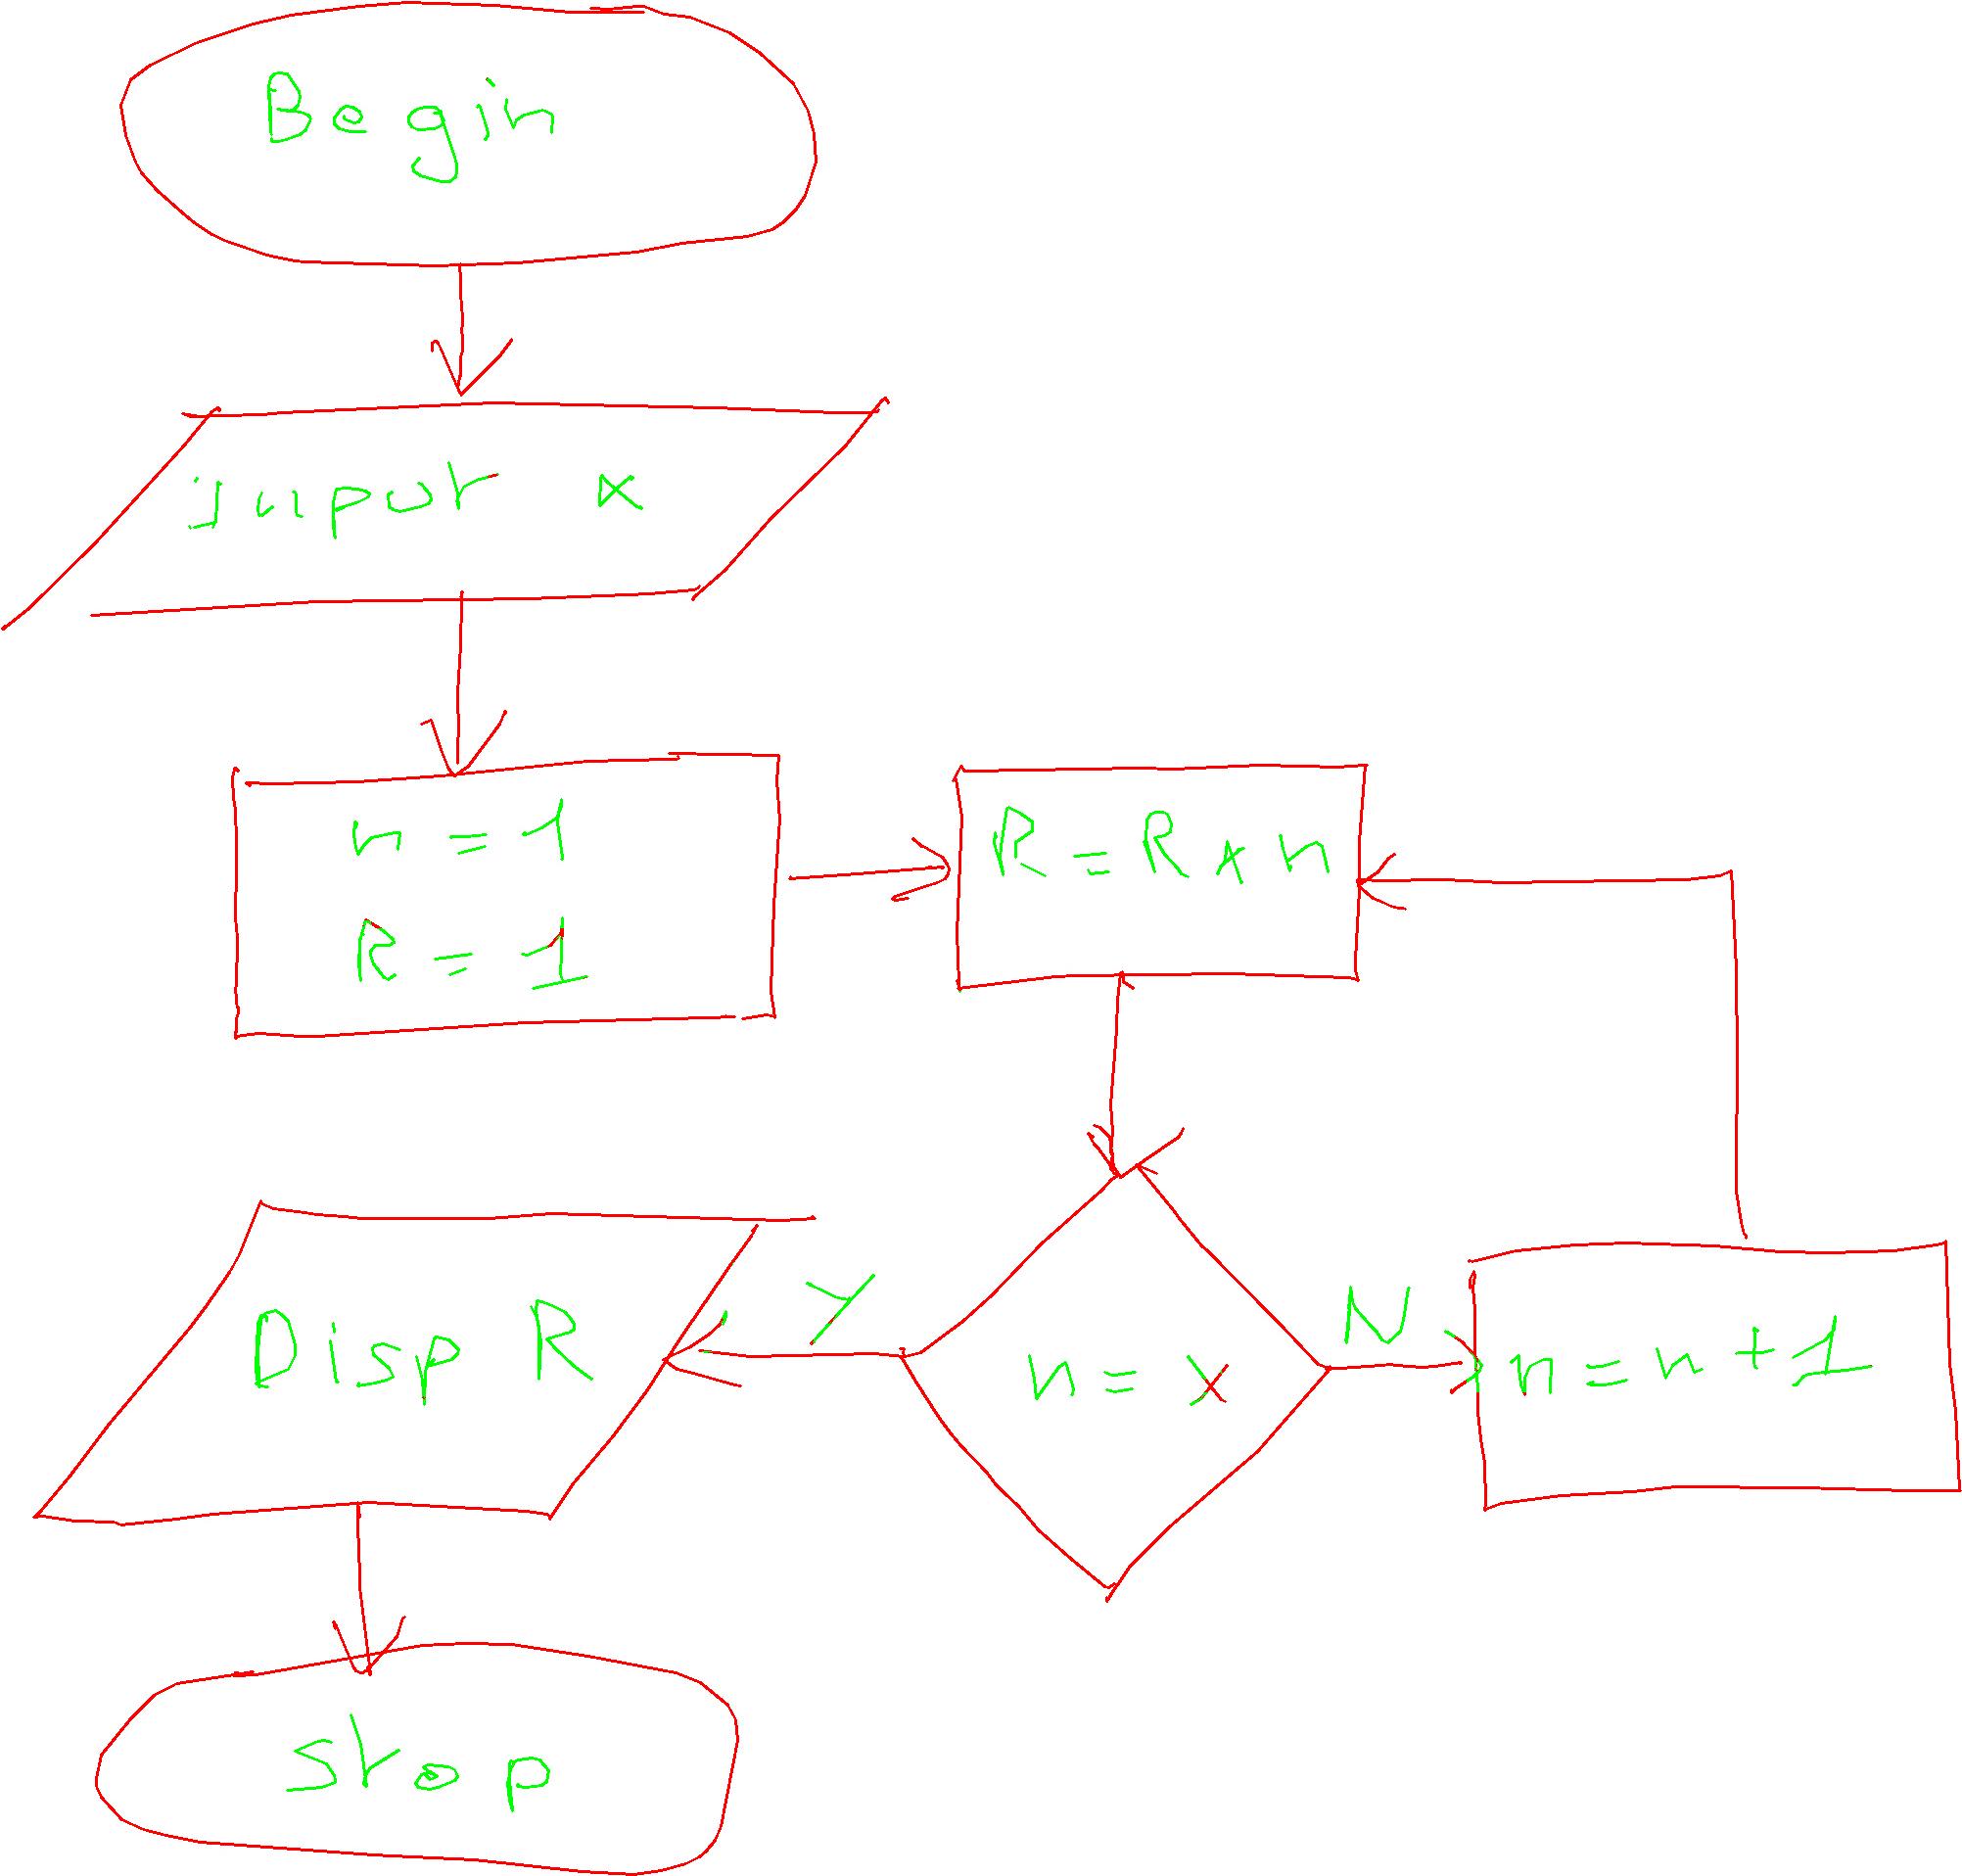 Begin
Input x
n = 1
R = 1
R = R * n
n = x
Y
N
n = n + 1
Disp R
Stop